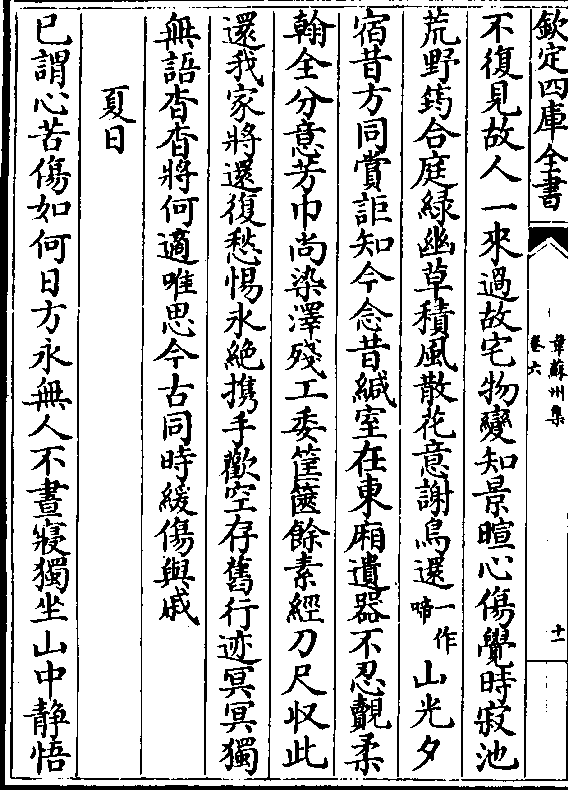 欽定四庫全書
韋蘇州集
卷六
十一
不復見故人一來過故宅物變知景暄心傷覺時寂池
荒野筠合庭綠幽草積風散花意謝鳥還一作啼山光夕
宿昔方同賞詎知今念昔緘室在東廂遺器不忍觀柔
翰全分意芳巾尚染澤殘工委筐篋餘素經刀尺收此
還我家將還復愁惕永絕携手歡空存舊行迹冥冥獨
無語杳杳將何適唯思今古同時緩傷與戚
夏日
已謂心苦傷如何日方永無人不晝寢獨坐山中静悟